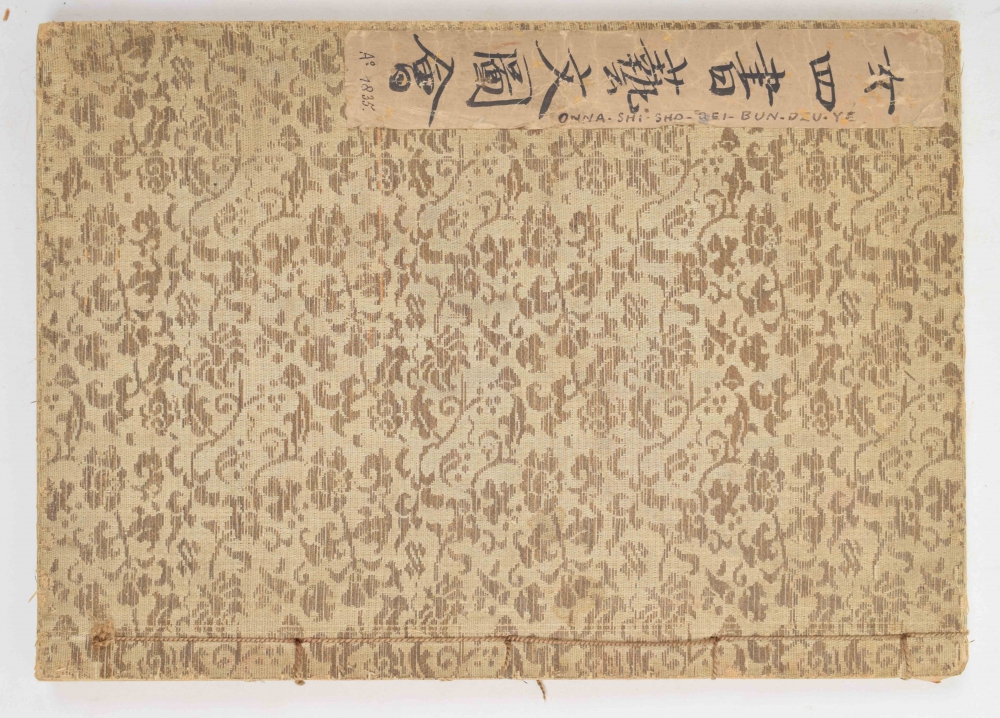 女四書藝文圖會
ONNA-SHI-SHO-GEI-BUN-DZU-YE
Aº 1835